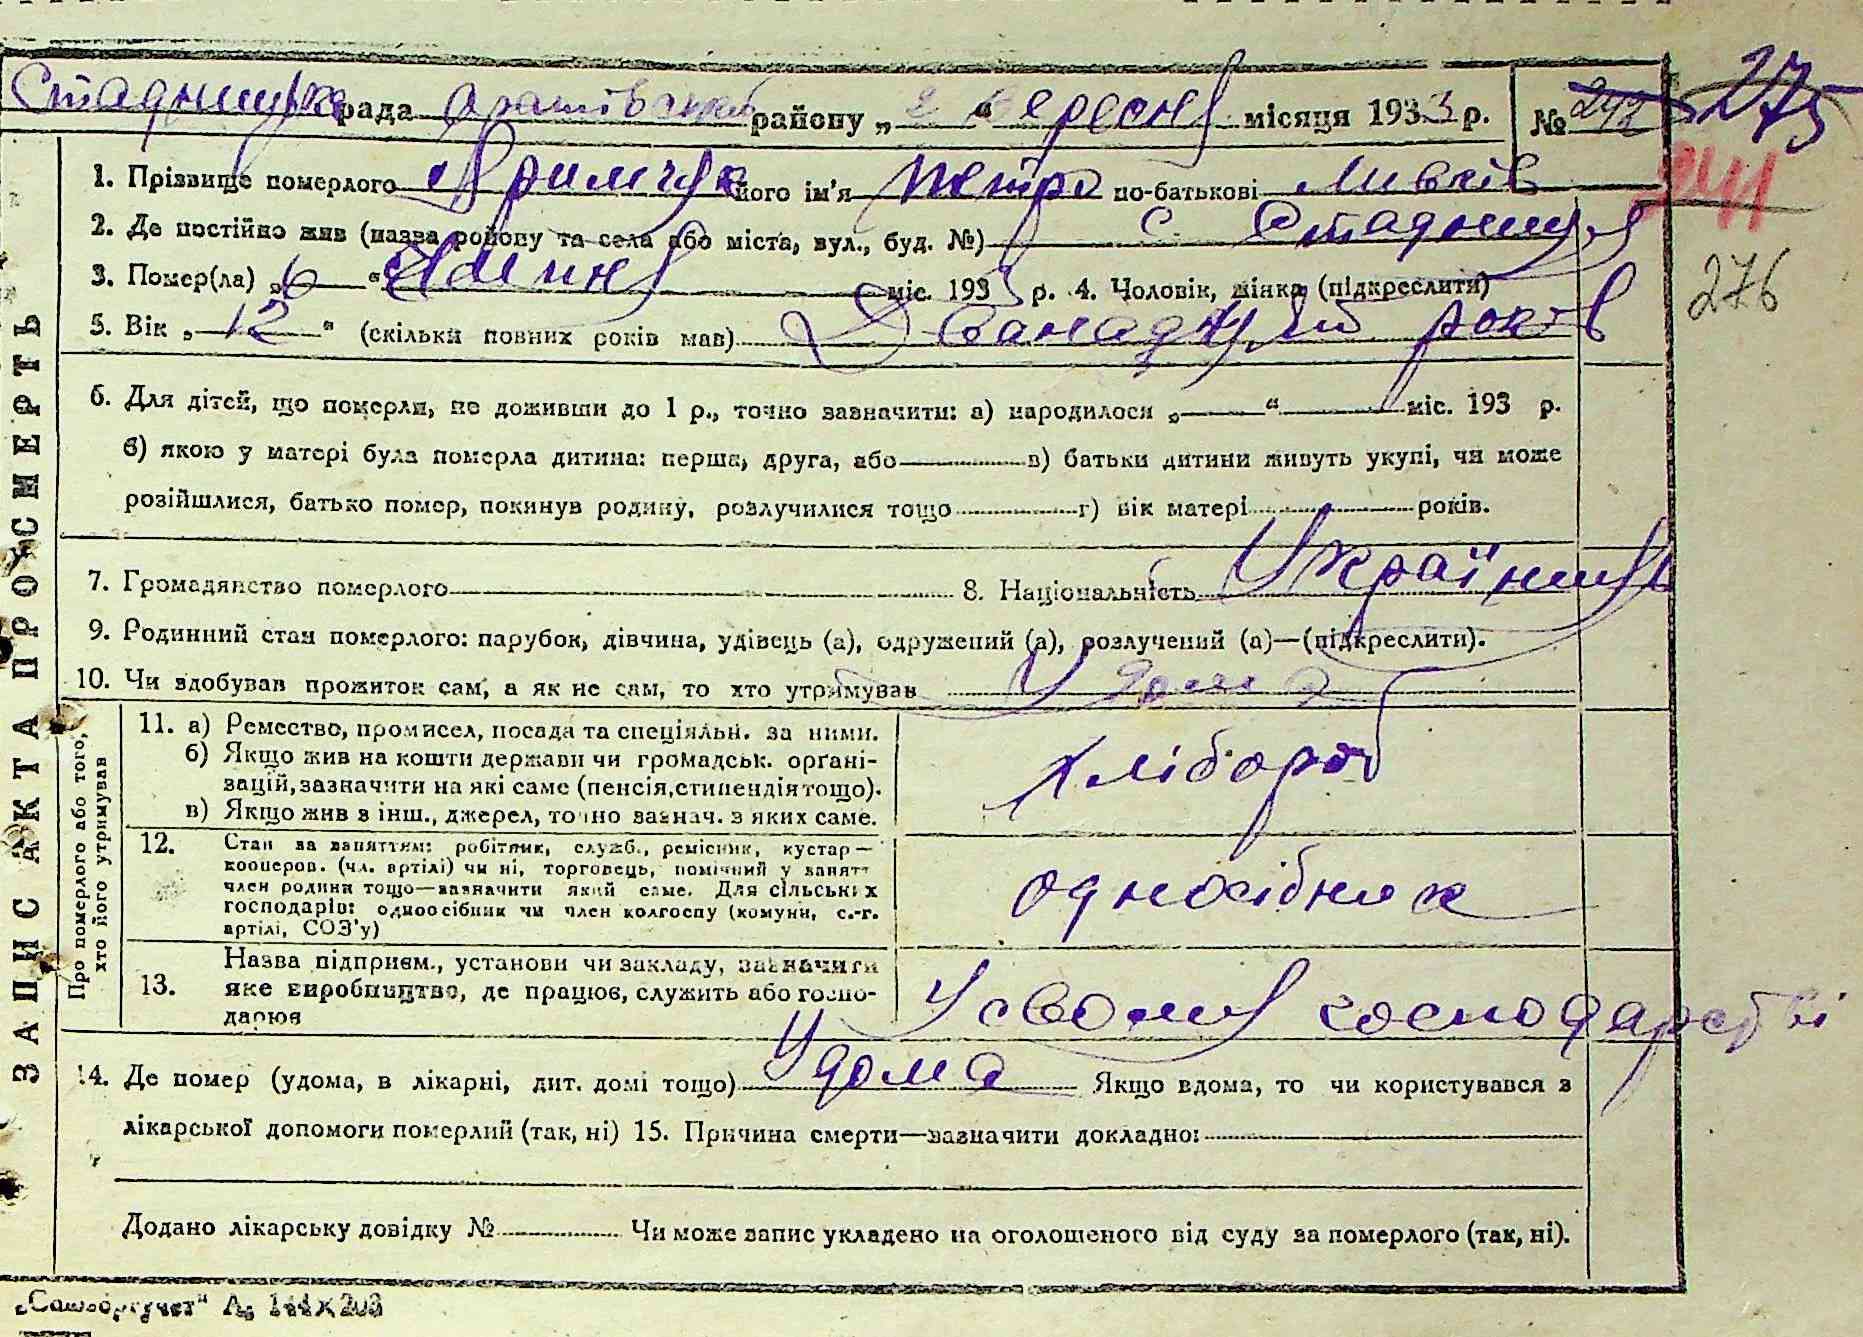 Стадницька рада Оратівський району „2“ вересня місяця 1933 р. № 242 275
241
1. Прізвище померлого його ім'я Петро по-батькові
2. Де постійно жив (назва району та села або міста, вул., буд. №) с. Стадниця
3. Помер(ла) „6“ міс. 1933 р. 4. Чоловік, жінка (підкреслити)
276
5. Вік „12“ (скільки повних років мав) Дванадцять років
6. Для дітей, що померли, не доживши до 1 р., точно зазначити: а) народилося „ “ міс. 193 р.
б) якою у матері була померла дитина: перша, друга, або в) батьки дитини живуть укупі, чи може
розійшлися, батько помер, покинув родину, розлучилися тощо г) вік матері років.
7. Громадянство померлого 8. Національність Українець
9. Родинний стан померлого: парубок, дівчина, удівець (а), одружений (а), розлучений (а)—(підкреслити).
10. Чи здобував прожиток сам, а як не сам, то хто утримував Удома
Про померлого або того, хто його утримував
11. а) Ремество, промисел, посада та спеціяльн. за ними.
б) Якщо жив на кошти держави чи громадськ. орґані-
зацій, зазначити на які саме (пенсія, стипендія тощо).
в) Якщо жив з інш., джерел, точно зазнач. з яких саме.
хлібороб
12. Стан за заняттям: робітник, служб., ремісник, кустар—
кооперов. (чл. артілі) чи ні, торговець, помічний у занятт
член родини тощо—зазначити який саме. Для сільських
господарів: одноосібник чи член колгоспу (комуни, с.-г.
артілі, СОЗ'у)
односібник
13. Назва підприєм., установи чи закладу, зазначити
яке виробництво, де працює, служить або госпо-
дарює
У своему господарстві
14. Де помер (удома, в лікарні, дит. домі тощо) Удома Якщо вдома, то чи користувався з
лікарської допомоги померлий (так, ні) 15. Причина смерти—зазначити докладно:
Додано лікарську довідку № Чи може запис укладено на оголошеного від суду за померлого (так, ні).
ЗАПИС АКТА ПРО СМЕРТЬ